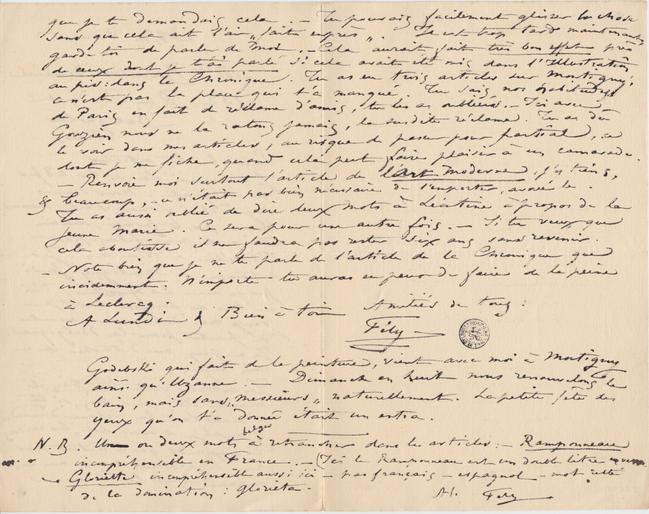 que je te demandais cela. – Tu pouvais facilement glisser la chose
sans que cela ait l'air „faite exprès". Il est trop tard maintenant
garde toi de parler de moi. Cela aurait fait très bon effet près
de ceux dont je t'ai parlé si cela avait été mis dans l'Illustration
au pis: dans la Chronique. Tu as eu trois articles sur Montigny,
ce n'est pas la place qui t'a manqué. Tu sais nos habitudes
de Paris en fait de réclame d'amis, tu les as oubliées. – Ici avec
nous ne la ratons jamais, la susdite réclame. Tu as dû
le voir dans mes articles, au risque de passer pour partial, ce
dont je me fiche, quand cela peut faire plaisir à un camarade.
– Renvoie moi surtout l'article de l'Art moderne, j'y tiens,
beaucoup, – ce n'était pas bien nécessaire de l'emporter, avoue le.
Tu as aussi oublié de dire deux mots à Léontine à propos de la
jeune Marie. Ce sera pour une autre fois. – Si tu veux que
cela aboutisse il ne faudra pas rester six ans sans revenir.
– Note bien que je ne te parle de l'article de la Chronique que
incidemment. N'importe tu auras eu peur de faire de la peine
à Leclercq.
A Lundi & Bien à toi Amitiés de tous:
Fély
Godebski qui fait de la peinture, vient avec moi à Montigny
ainsi qu'Uzanne. – Dimanche en huit nous renouvelons le
bain, mais sans „messieurs" naturellement. La petite fête des
yeux qu'on t'a donnée était un extra.
N.B. Un ou deux mots à retrancher dans les articles: – Ramponneau
incompréhensible en France. – (Ici le Ramponneau est un double litre
Gloriette incompréhensible aussi ici – pas français – espagnol – mot
de la domination: glorieta.
Fély